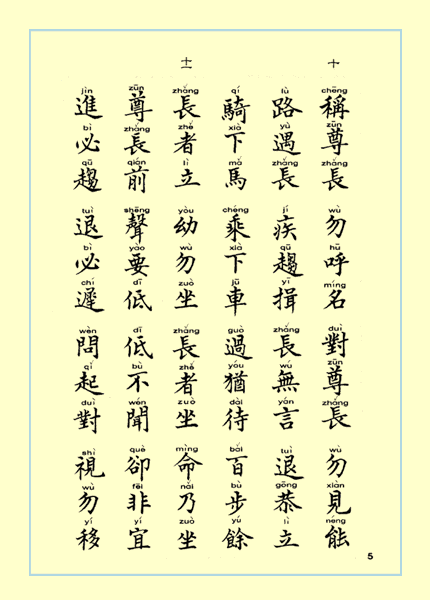 十
chēng zūn zhǎng wù hū míng duì zūn zhǎng wù xiàn néng
稱尊長 勿呼名 對尊長 勿見能
lù yù zhǎng jí qū yī zhǎng wú yán tuì gōng lì
路遇長 疾趨揖 長無言 退恭立
qí xià mǎ chéng xià jū guò yóu dài bǎi bù yú
騎下馬 乘下車 過猶待 百步餘
十一
zhǎng zhě lì yòu wù zuò zhǎng zhě zuò mìng nǎi zuò
長者立 幼勿坐 長者坐 命乃坐
zūn zhǎng qián shēng yào dī dī bù wén què fēi yí
尊長前 聲要低 低不聞 卻非宜
jìn bì qū tuì bì chí wèn qǐ duì shì wù yí
進必趨 退必遲 問起對 視勿移
5